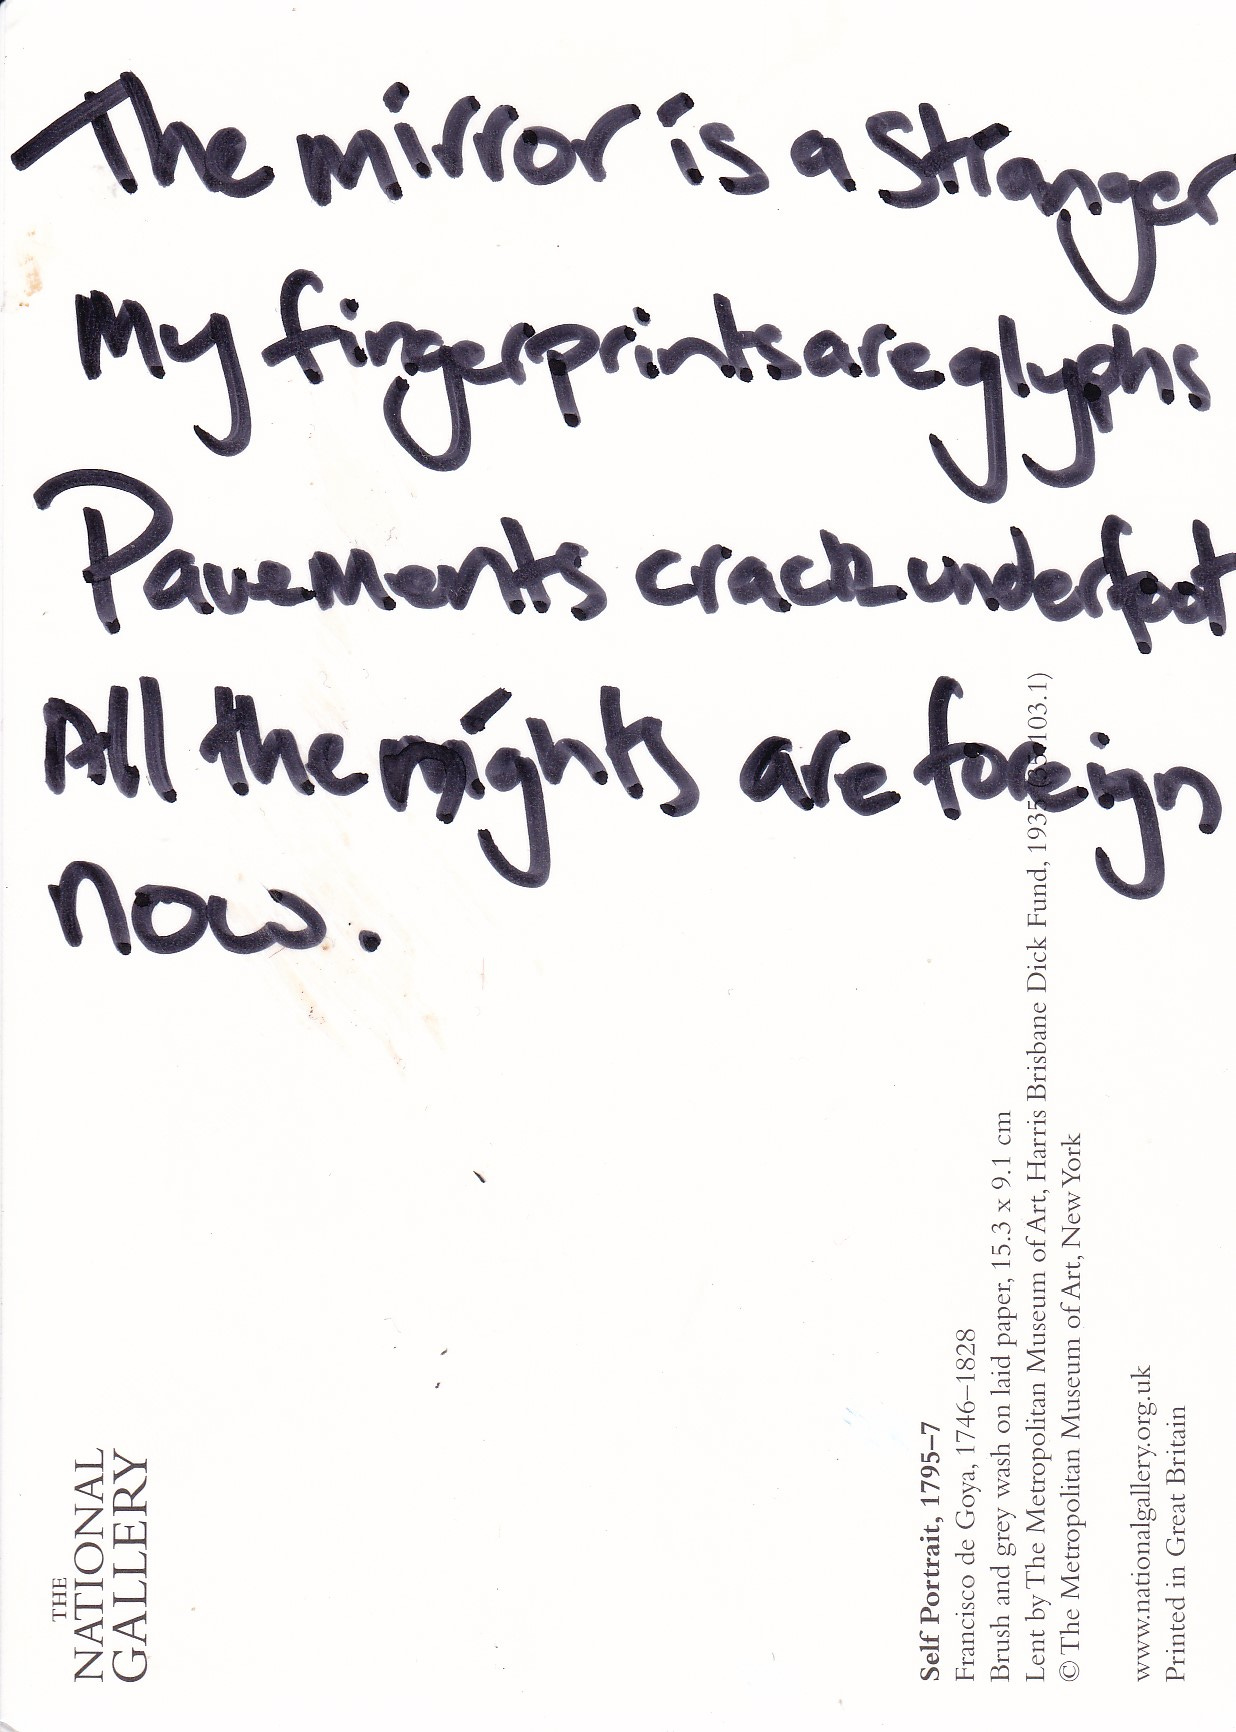 The mirror is a stranger
My fingerprints are glyphs
Pavements crack underfoot
All the nights are foreign
now.
THE
NATIONAL
GALLERY
Self Portrait, 1795–7
Francisco de Goya, 1746–1828
Brush and grey wash on laid paper, 15.3 x 9.1 cm
Lent by The Metropolitan Museum of Art, Harris Brisbane Dick Fund, 1935 (35.103.1)
© The Metropolitan Museum of Art, New York
www.nationalgallery.org.uk
Printed in Great Britain